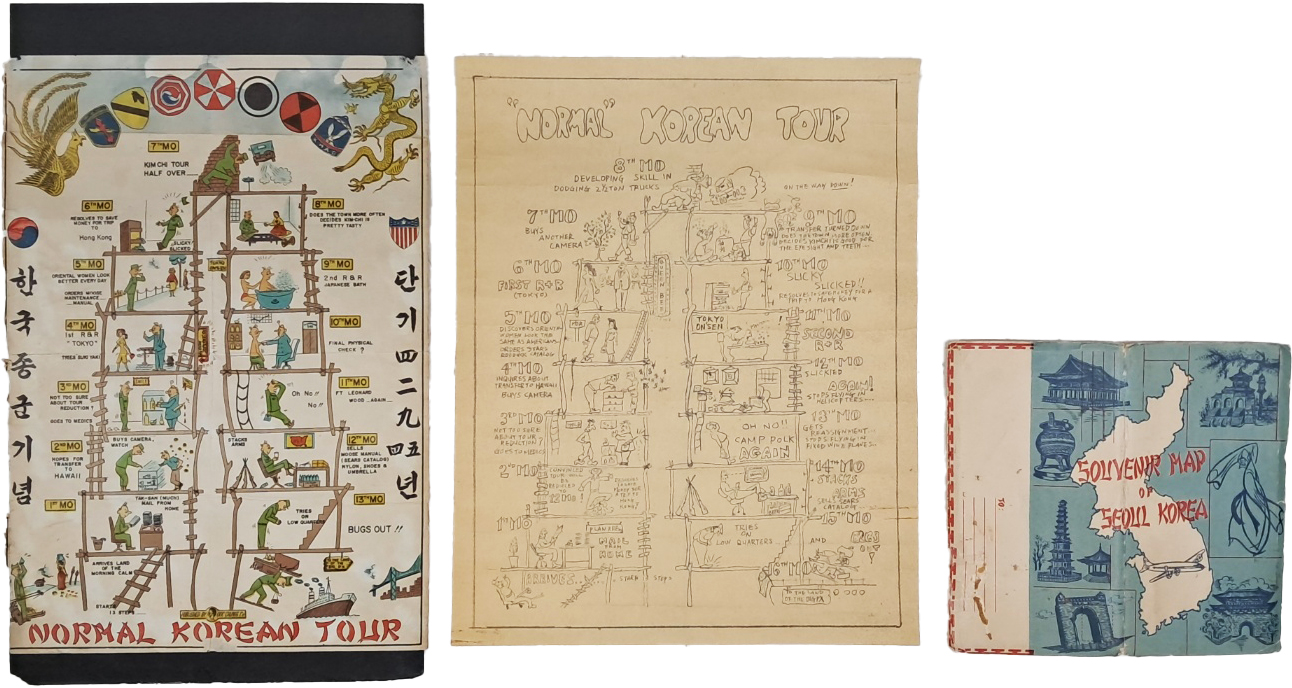 7TH MO
KIM CHI TOUR
HALF OVER
6TH MO
RESOLVES TO SAVE
MONEY FOR TRIP
TO
Hong Kong
SLICKY
SLICKED
8TH MO
DOES THE TOWN MORE OFTEN
DECIDES KIM-CHI IS
PRETTY TASTY
5TH MO
ORIENTAL WOMEN LOOK
BETTER EVERY DAY
ORDERS MOOSE
MAINTENANCE
MANUAL
9TH MO
2nd R & R
JAPANESE BATH
4TH MO
1st R & R
"TOKYO"
TRIES SUKI YAKI
10TH MO
FINAL PHYSICAL
CHECK ?
3RD MO
NOT TOO SURE
ABOUT TOUR
REDUCTION ?
GOES TO MEDICS
Oh No!!
No!!
11TH MO
FT LEONARD
WOOD ...AGAIN
2ND MO
HOPES FOR
TRANSFER
TO
HAWAII
BUYS CAMERA,
WATCH
STACKS
ARMS
12TH MO
SELLS
MOOSE MANUAL
(SEARS CATALOG)
NYLON, SHOES &
UMBRELLA
1ST MO
TAK-SAN (MUCH)
MAIL FROM
HOME
TRIES
ON
LOW QUARTERS
13TH MO
BUGS OUT !!
ARRIVES LAND
OF THE
MORNING CALM
STARTS
13 STEPS
한국종군기념
단기四二九四五年
NORMAL KOREAN TOUR
"NORMAL" KOREAN TOUR
8TH MO
DEVELOPING SKILL IN
DODGING 2½ TON TRUCKS
ON THE WAY DOWN!
7TH MO
BUYS
ANOTHER
CAMERA
9TH MO
TRANSFER TURNED DOWN
DOES THE TOWN MORE OFTEN
DECIDES KIMCHI IS GOOD FOR
THE EYESIGHT AND TEETH
6TH MO
FIRST R+R
(TOKYO)
10TH MO
SLICKY
SLICKED!!
5TH MO
TOKYO
ONSEN
11TH MO
SECOND
R+R
4TH MO
INQUIRES ABOUT
TRANSFER TO HAWAII
BUYS CAMERA
12TH MO
SLICKED
AGAIN!
STOPS FLYING IN
HELICOPTERS
3RD MO
NOT TOO SURE
ABOUT TOUR
REDUCTION
GOES TO MEDICS
OH NO!!
CAMP POLK
AGAIN
13TH MO
GETS
REASSIGNMENT
STOPS FLYING IN
FIXED WING PLANES
2ND MO
14TH MO
STACKS
ARMS
SELLS SEARS
CATALOG
1ST MO
MAIL
FROM
HOME
TRIES
ON
LOW QUARTERS
15TH MO
AND
BUGS
OUT
ARRIVES..
START
STOP
16TH MO
TO THE LAND
OF THE BIG PX
TO:
SOUVENIR MAP
OF
SEOUL KOREA